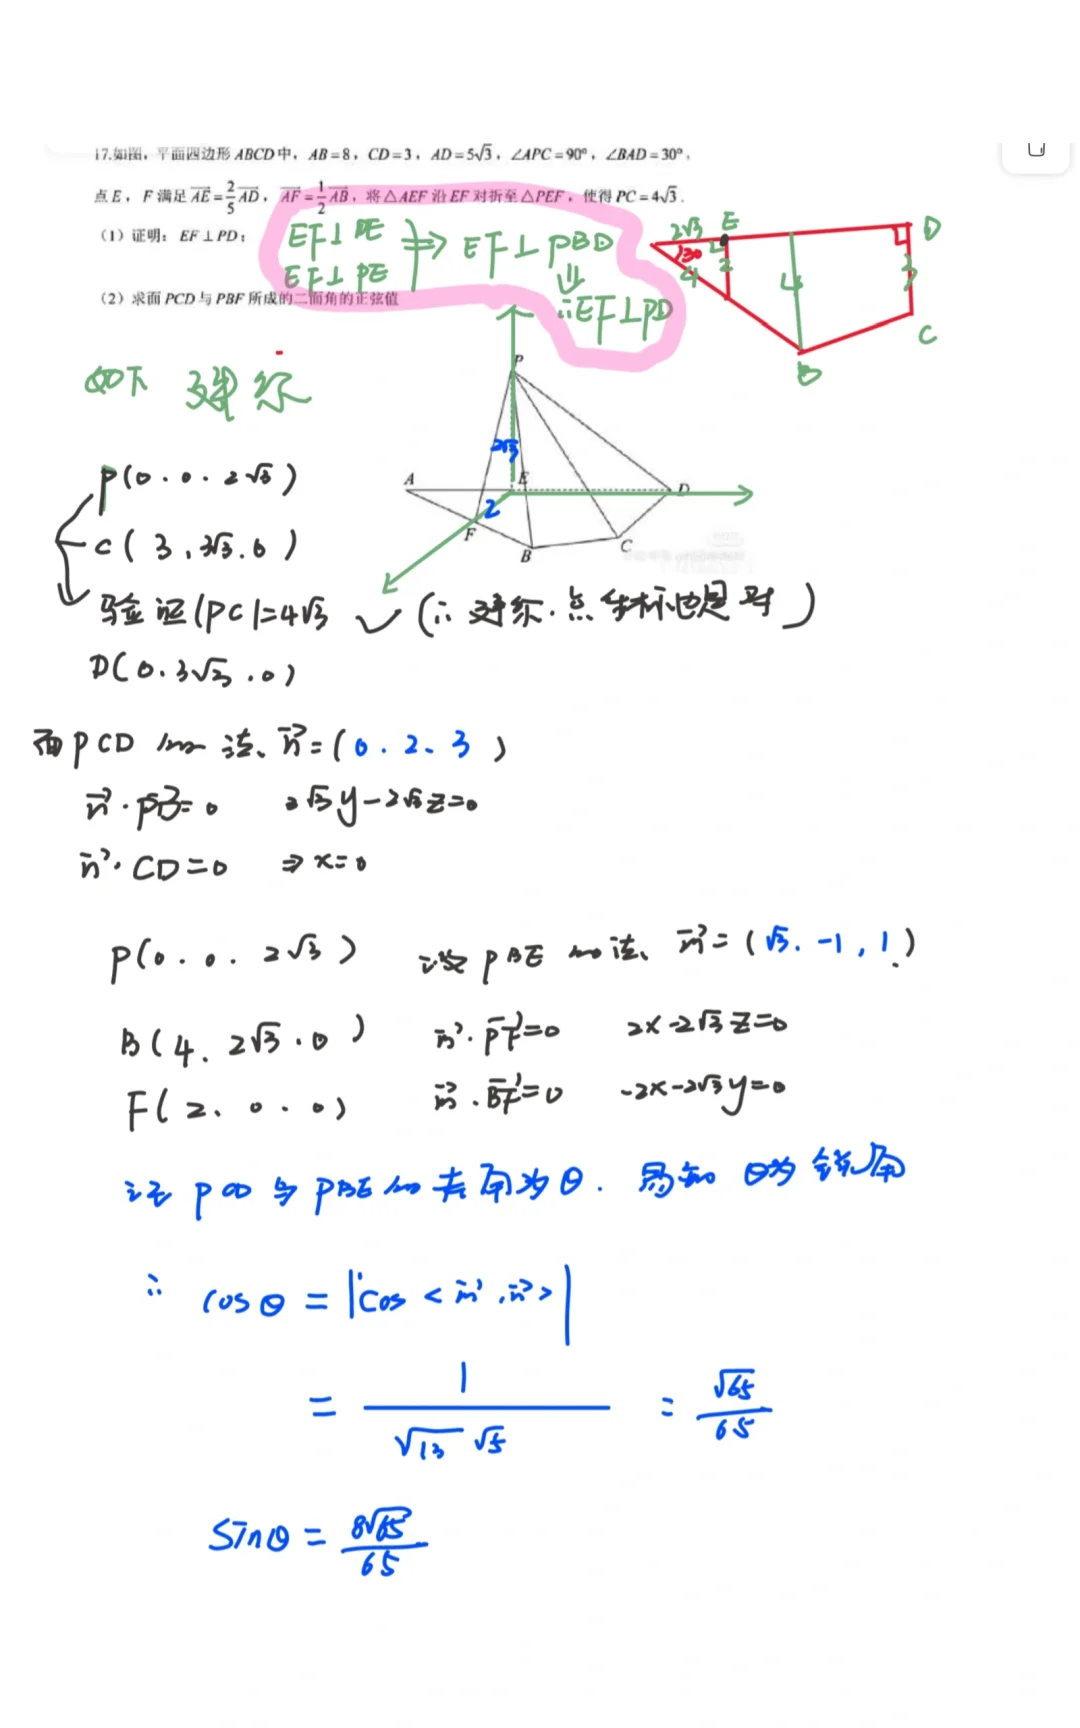 17.如图，平面四边形 ABCD 中，AB=8，CD=3，AD=5√3，∠APC=90°，∠BAD=30°，
点 E，F 满足 AE=2/5 AD，AF=1/2 AB，将△AEF 沿 EF 对折至△PEF，使得 PC=4√3.
（1）证明：EF⊥PD；
EF⊥DE
EF⊥PE
⇒ EF⊥PBD
⇓
∴EF⊥PD
（2）求面 PCD 与 PBF 所成的二面角的正弦值
2√3 E D
130 2
4 2 4 3
C
B
如下 建系
P
2√3
A E D
2
F B C
P(0.0.2√3)
C(3,3√3.0)
验证|PC|=4√3 ✓ (∴建系.点坐标也是对)
D(0.3√3.0)
面PCD 的法、n=(0.2、3)
n·PD=0 2√3y-2√3z=0
n·CD=0 ⇒x=0
P(0.0.2√3) 设PBE的法、m=(√3.-1,1)
B(4.2√3.0) m·PF=0 2x-2√3z=0
F(2.0.0) m·BF=0 -2x-2√3y=0
记PCD与PBE的夹角为θ.易知θ为锐角
∴ cosθ=|cos<m,n>|
= 1/√13√5 = √65/65
sinθ=8√65/65